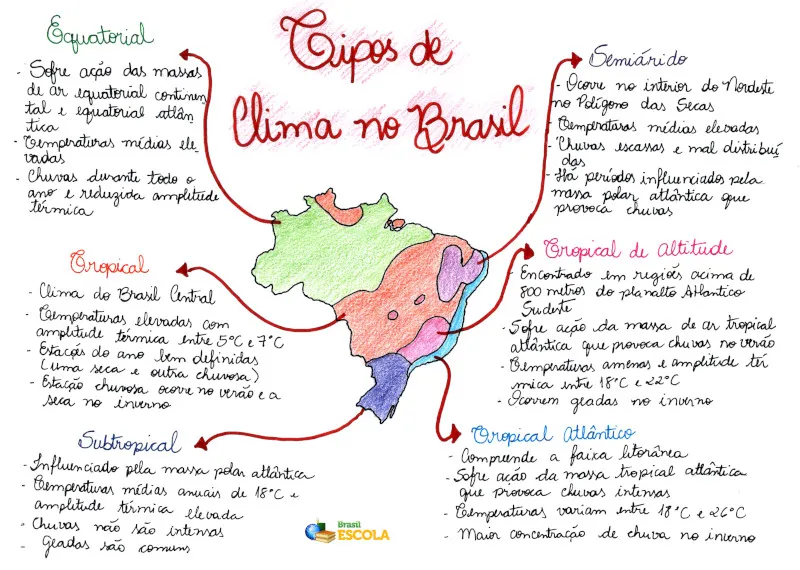 Tipos de
Clima no Brasil
Equatorial
- Sofre ação das massas
de ar equatorial continen
tal e equatorial atlân_
tica
- Temperaturas médias ele_
vadas
- Chuvas durante todo o
ano e reduzida amplitude
térmica
Tropical
- Clima do Brasil Central
- Temperaturas elevadas com
amplitude térmica entre 5°C e 7°C
- Estações do ano bem definidas
(uma seca e outra chuvosa)
- Estação chuvosa ocorre no verão e a
seca no inverno
Subtropical
- Influenciado pela massa polar atlântica
- Temperaturas médias anuais de 18°C e
amplitude térmica elevada
- Chuvas não são intensas
- Geadas são comuns
Semiárido
- Ocorre no interior do Nordeste
no Polígono das Secas
- Temperaturas médias elevadas
- Chuvas escassas e mal distribuí
das
- Há períodos influenciados pela
massa polar atlântica que
provoca chuvas
Tropical de Altitude
- Encontrado em regiões acima de
800 metros do planalto Atlantico
Sudeste
- Sofre ação da massa de ar tropical
atlântica que provoca chuvas no verão
- Temperaturas amenas e amplitude tér
mica entre 18°C e 22°C
- Ocorrem geadas no inverno
Tropical Atlântico
- Compreende a faixa litorânea
- Sofre ação da massa tropical atlântica
que provoca chuvas intensas
- Temperaturas variam entre 18°C e 26°C
- Maior concentração de chuva no inverno
Brasil
ESCOLA